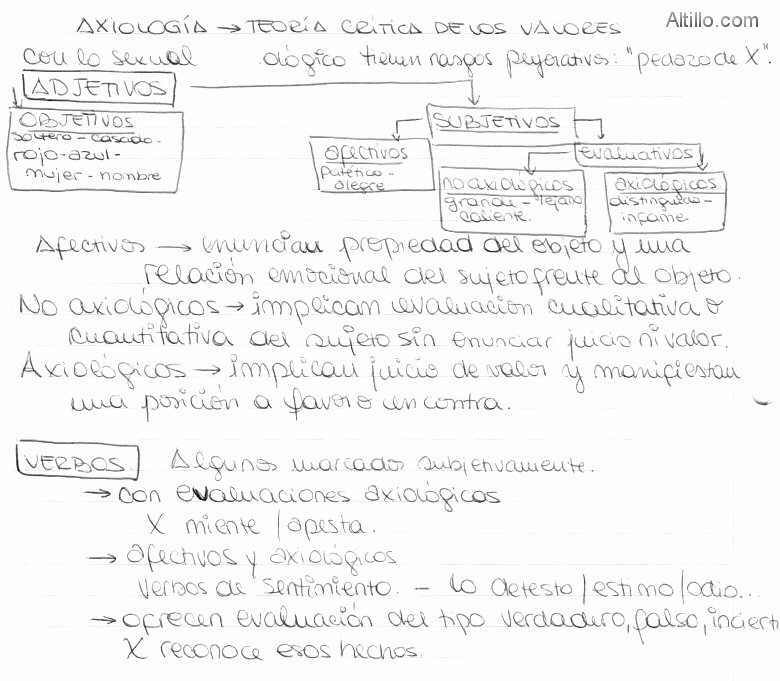 Altillo.com
AXIOLOGÍA → TEORÍA CRÍTICA DE LOS VALORES
con lo sexual ológico tienen rasgos peyorativos: "pedazo de X".
ADJETIVOS
OBJETIVOS
soltero - casado.
rojo - azul -
mujer - hombre
SUBJETIVOS
afectivos
patético -
alegre
evaluativos
no axiológicos
grande - lejano
caliente.
axiológicos
distinguido -
infame
Afectivos → enuncian propiedad del objeto y una
relación emocional del sujeto frente al objeto.
No axiológicos → implican evaluación cualitativa o
cuantitativa del sujeto sin enunciar juicio ni valor.
Axiológicos → implican juicio de valor y manifiestan
una posición a favor o en contra.
VERBOS. Algunos marcados subjetivamente.
→ con evaluaciones axiológicos
X miente / apesta.
→ afectivos y axiológicos
verbos de sentimiento. - lo detesto / estimo / odio...
→ ofrecen evaluación del tipo verdadero, falso, inciert
X reconoce esos hechos.